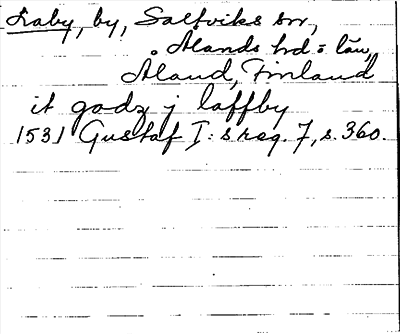 Laby, by, Saltviks sn,
Ålands hd o län,
Åland, Finland
it godz j laffby
1531 Gustaf I:s reg. 7, s. 360.